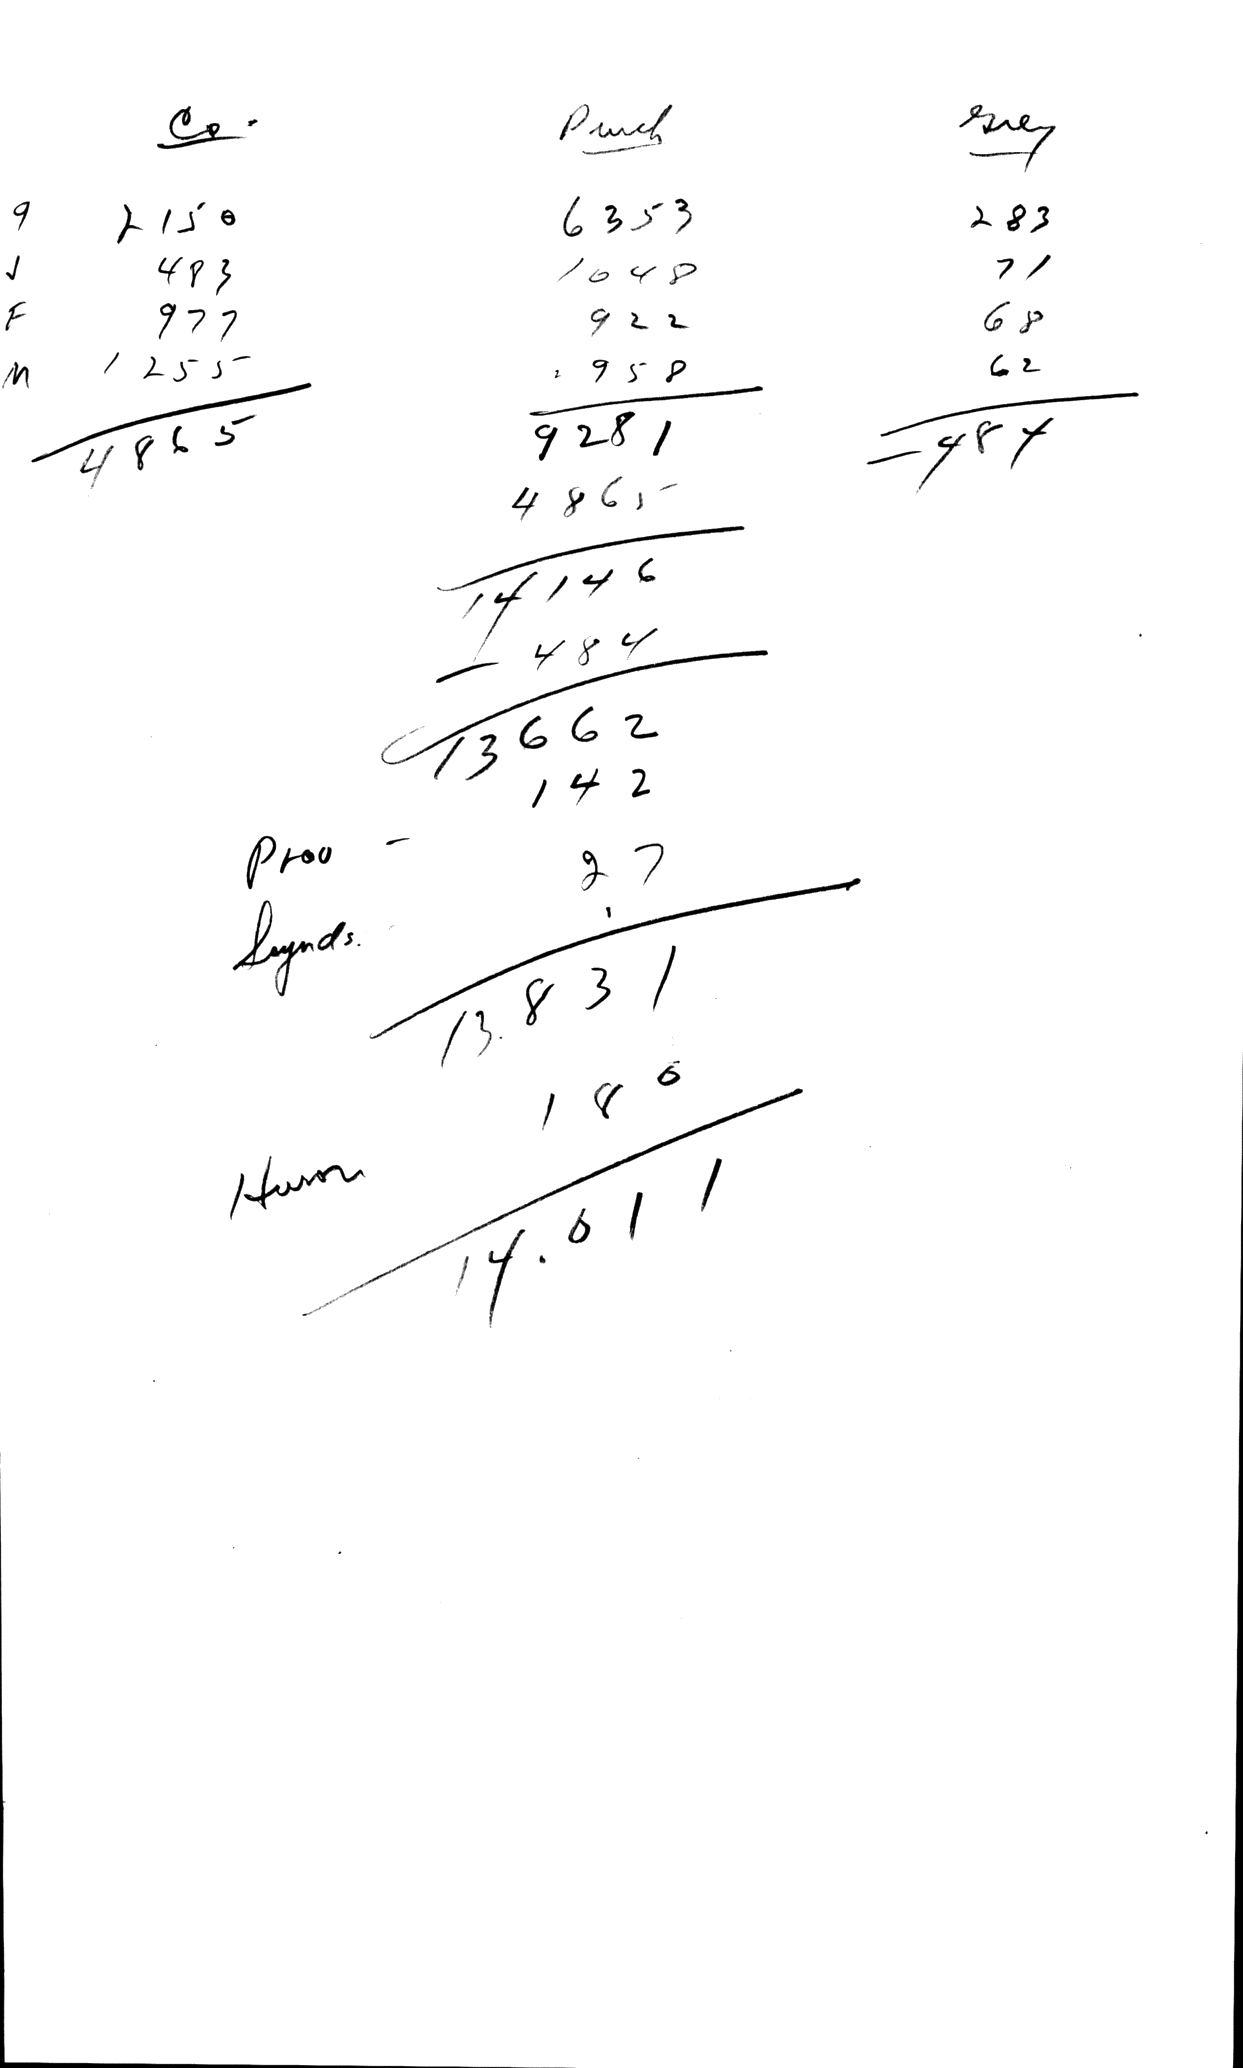 Co. Purch Grey
9 2150 6353 283
J 483 1048 71
F 977 922 68
M 1255 958 62
4865 9281 484
4865
14146
484
13662
142
Prov - 27
Synds.
13.831
180
Huron
14.011